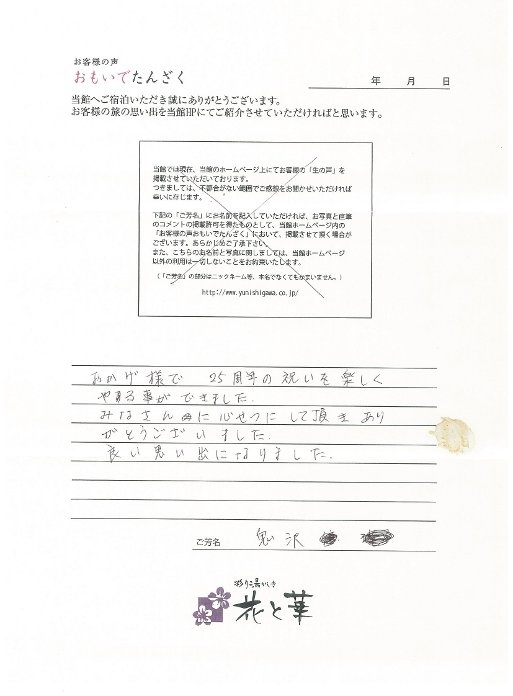 お客様の声
おもいでたんざく
年 月 日
当館へご宿泊いただき誠にありがとうございます。
お客様の旅の思い出を当館HPにてご紹介させていただければと思います。
当館では現在、当館のホームページ上にてお客様の「生の声」を
掲載させていただいております。
つきましては、不都合がない範囲でご感想をお聞かせいただければ
幸いに存じます。
下記の「ご芳名」にお名前を記入していただければ、お写真と直筆
のコメントの掲載許可を得たものとして、当館ホームページ内の
「お客様の声おもいでたんざく」において、掲載させて頂く場合が
ございます。あらかじめご了承下さい。
また、こちらのお名前と写真に関しましては、当館ホームページ
以外の利用は一切しないことをお約束いたします。
(「ご芳名」の部分はニックネーム等、本名でなくてもかまいません。)
http://www.yunishigawa.co.jp/
おかげ様で 25周年の祝いを楽しく
やる事ができました。
みなさん に心せつにして頂きあり
がとうございました。
良い思い出になりました。
ご芳名 鬼沢
彩り湯かしき
花と華